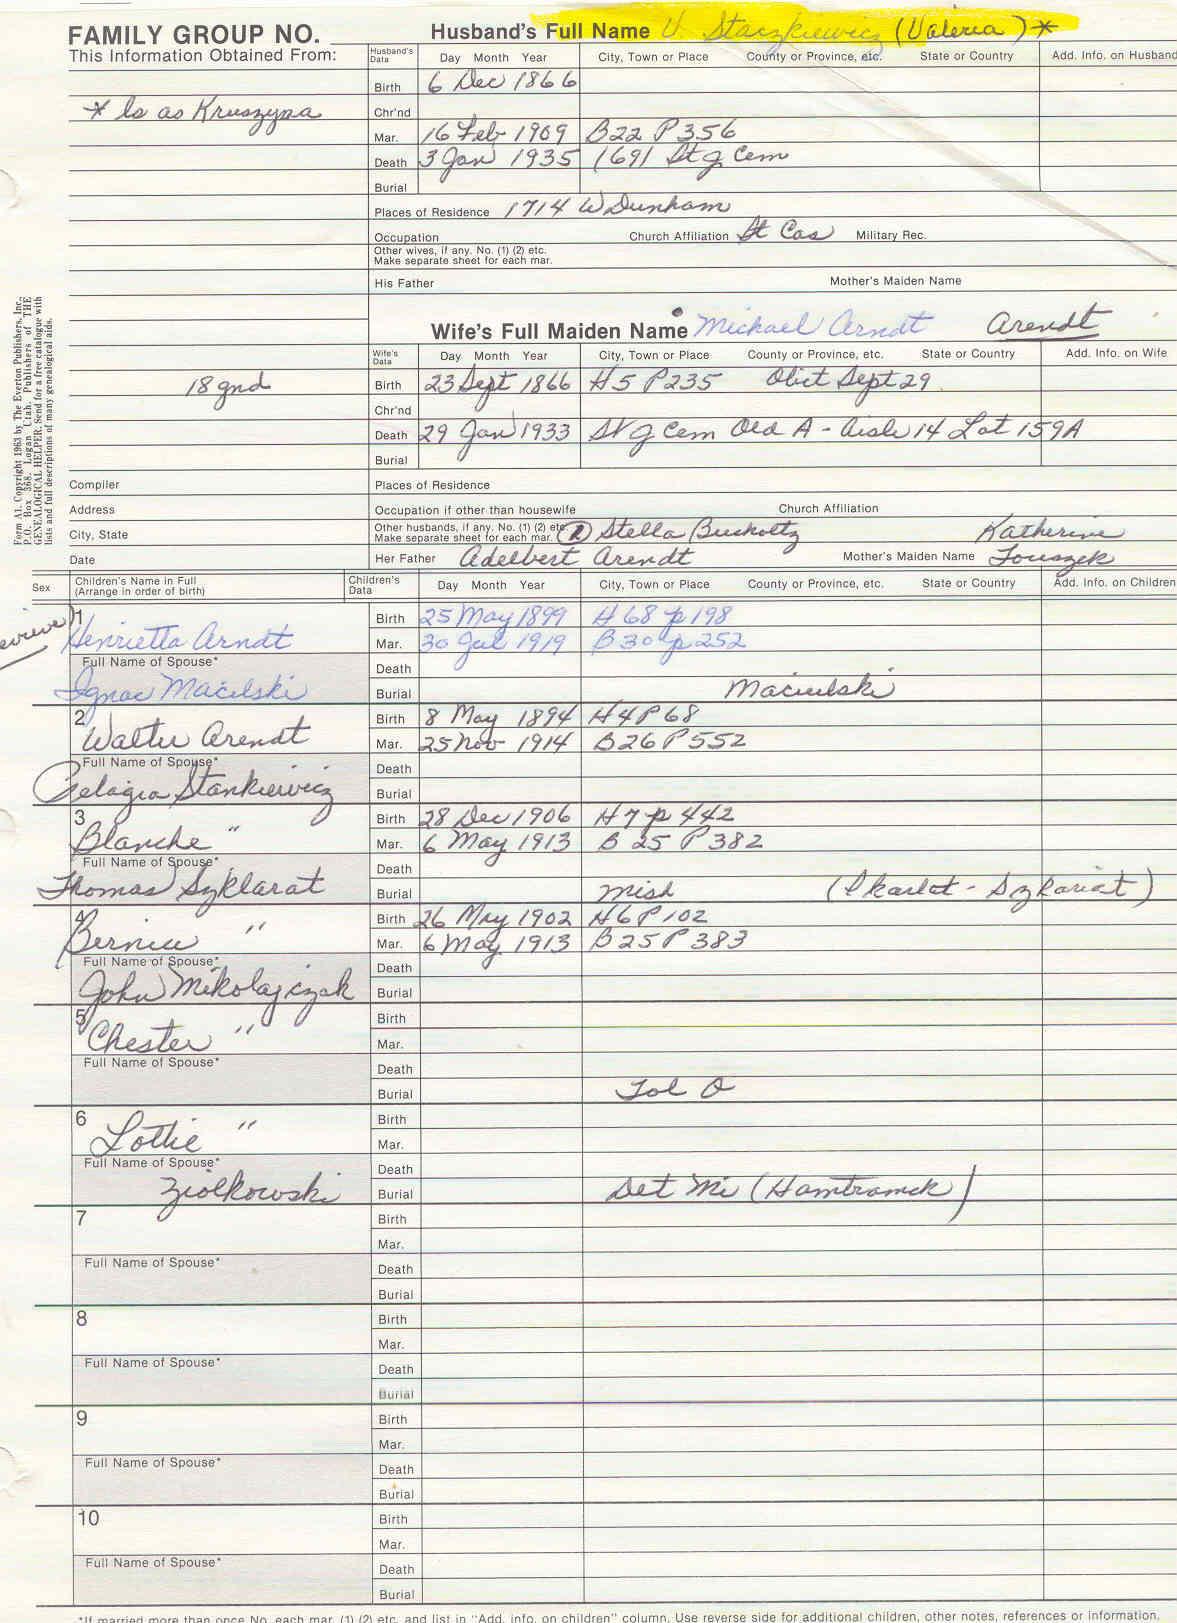 FAMILY GROUP NO.
Husband's Full Name V. Staczkiewicz (Valeria) *
This Information Obtained From:
Husband's Data Day Month Year City, Town or Place County or Province, etc. State or Country Add. Info. on Husband
Birth 6 Dec 1866
* ls as Kruszyna
Chr'nd
Mar. 16 Feb 1909 B22 P356
Death 3 Jan 1935 1691 St J Cem
Burial
Places of Residence 1714 W Dunham
Occupation Church Affiliation St Cas Military Rec.
Other wives, if any. No. (1) (2) etc.
Make separate sheet for each mar.
His Father Mother's Maiden Name
Wife's Full Maiden Name Michael Arndt Arendt
Wife's Data Day Month Year City, Town or Place County or Province, etc. State or Country Add. Info. on Wife
18 gnd
Birth 23 Sept 1866 H5 P235 Obit Sept 29
Chr'nd
Death 29 Jan 1933 St J Cem Old A - Aisle 14 Lot 159A
Burial
Compiler Places of Residence
Address Occupation if other than housewife Church Affiliation
City, State Other husbands, if any. No. (1) (2) etc.
Make separate sheet for each mar. (2) Stella Bucholtz Katherine
Date Her Father Adelbert Arendt Mother's Maiden Name Touszek
Form A1. Copyright 1963 by The Everton Publishers, Inc.
P.O. Box 368. Logan Utah. Publishers of THE
GENEALOGICAL HELPER. Send for a free catalogue with
lists and full descriptions of many genealogical aids.
Sex Children's Name in Full
(Arrange in order of birth) Children's Data Day Month Year City, Town or Place County or Province, etc. State or Country Add. Info. on Children
1 Birth 25 May 1899 H 68 p 198
Henrietta Arndt Mar. 30 Jul 1919 B 30 p 252
Full Name of Spouse* Death
Ignac Macilski Burial Maciulski
2 Birth 8 May 1894 H4 P68
Walter Arendt Mar. 25 Nov 1914 B26 P552
Full Name of Spouse* Death
Pelagia Stankiewicz Burial
3 Birth 28 Dec 1906 H7 p 442
Blanche " Mar. 6 May 1913 B 25 P 382
Full Name of Spouse* Death
Thomas Szklarat Burial Mish (Skarlot - Szkariat)
4 Birth 26 May 1902 H6 P 102
Bernice " Mar. 6 May 1913 B25 P 383
Full Name of Spouse* Death
John Mikolajczak Burial
5 Birth
Chester " Mar.
Full Name of Spouse* Death
Burial Tol O
6 Birth
Lottie " Mar.
Full Name of Spouse* Death
Ziolkowski Burial Det Mi (Hamtramck)
7 Birth
Mar.
Full Name of Spouse* Death
Burial
8 Birth
Mar.
Full Name of Spouse* Death
Burial
9 Birth
Mar.
Full Name of Spouse* Death
Burial
10 Birth
Mar.
Full Name of Spouse* Death
Burial
*If married more than once No. each mar. (1) (2) etc. and list in "Add. info. on children" column. Use reverse side for additional children, other notes, references or information.